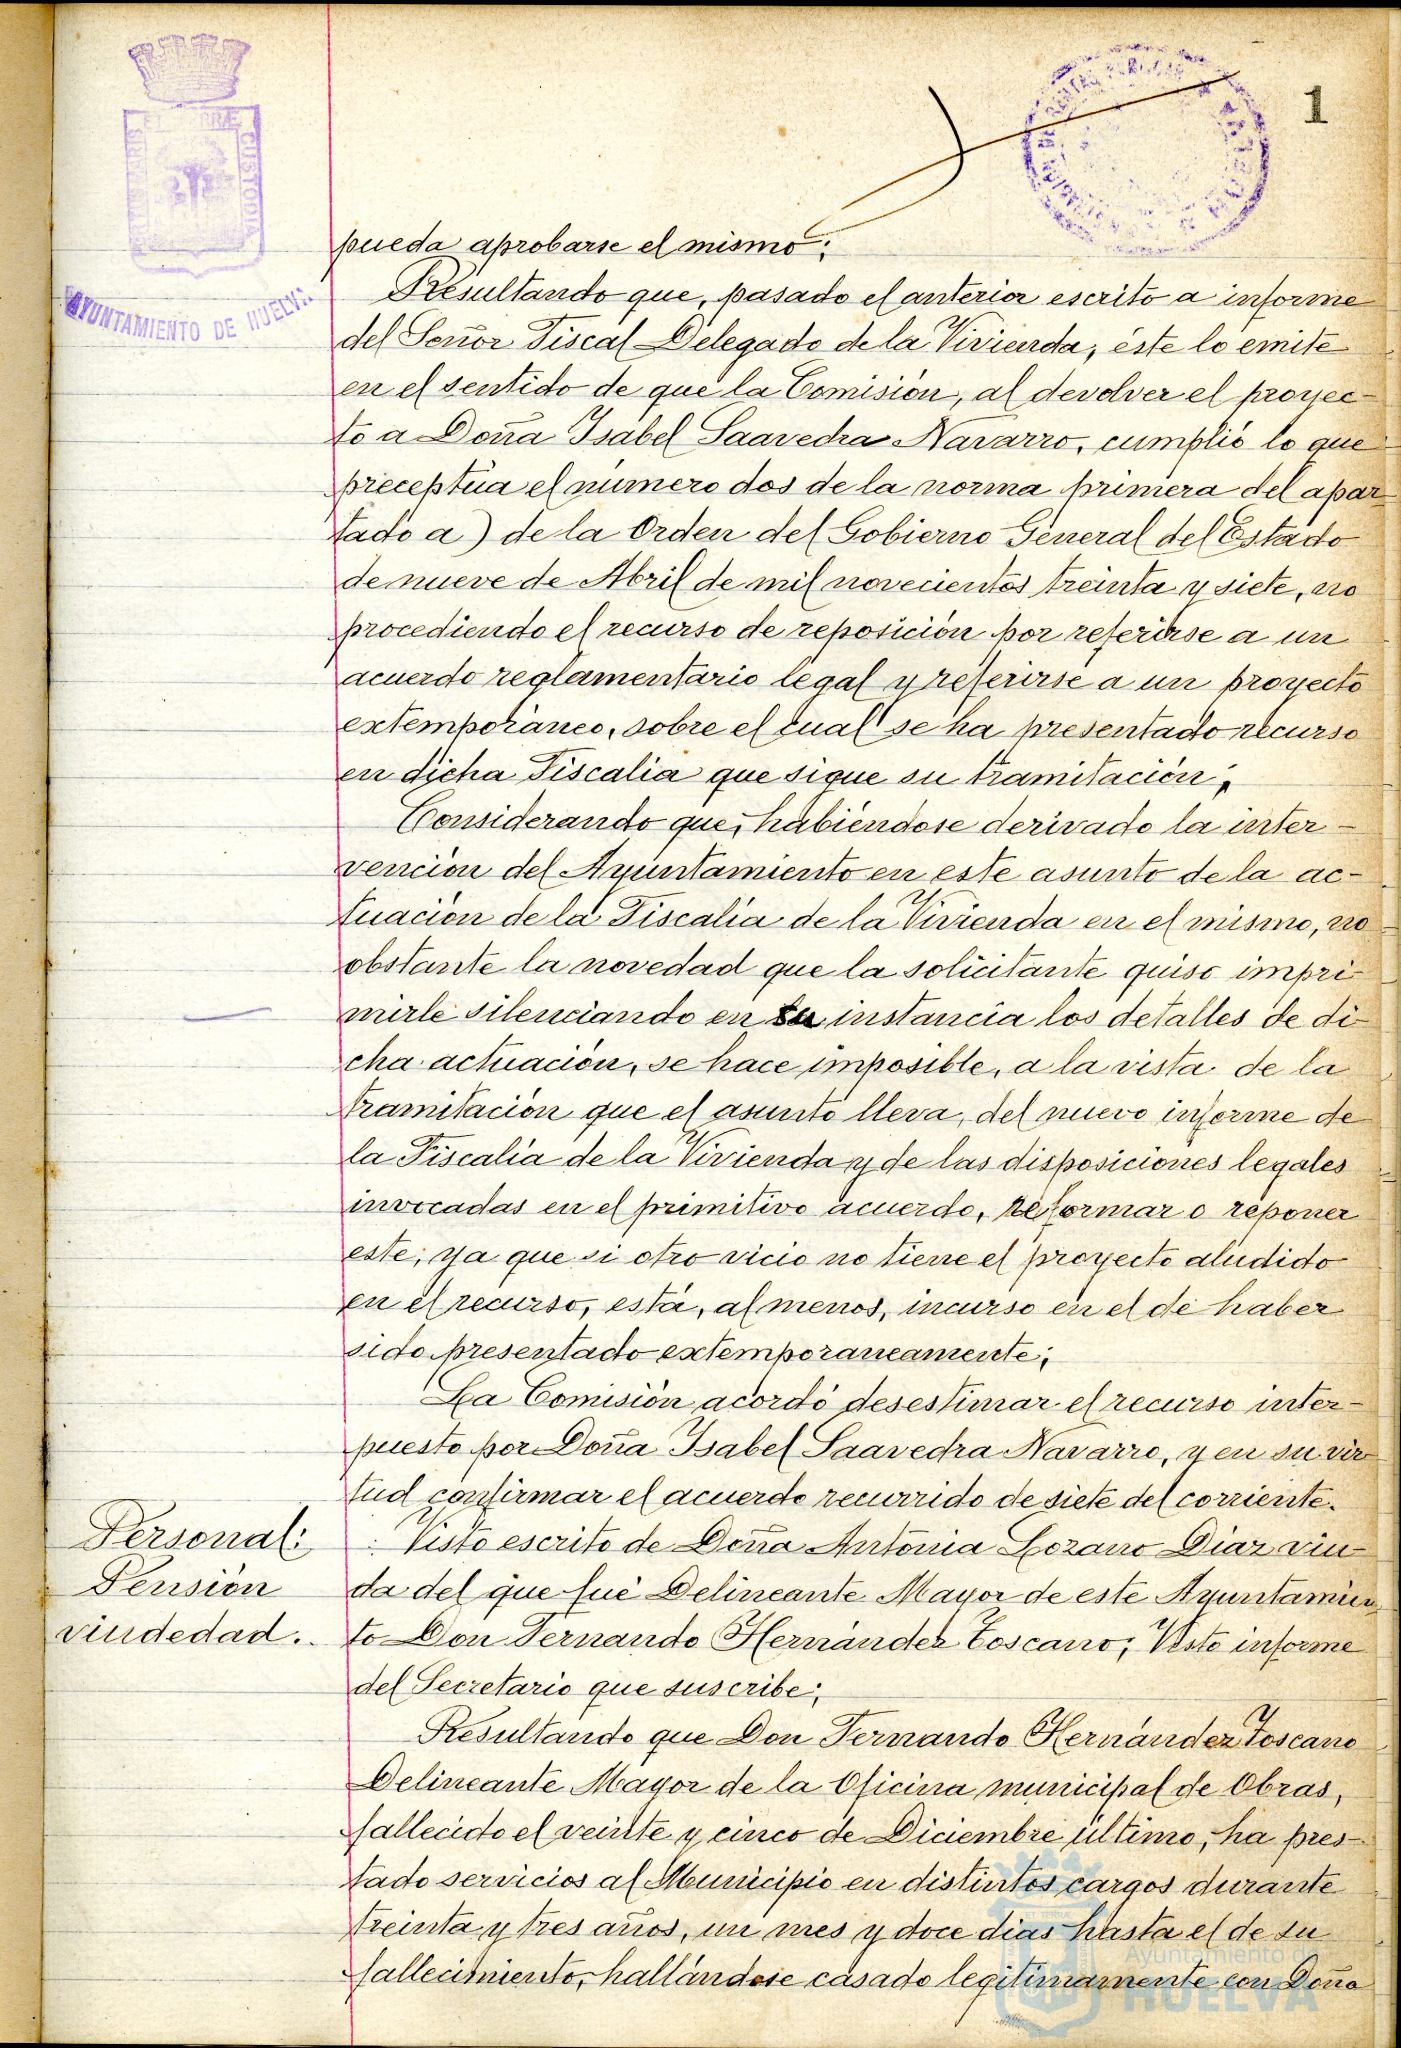 1
AYUNTAMIENTO DE HUELVA
pueda aprobarse el mismo;
Resultando que, pasado el anterior escrito a informe
del Señor Fiscal Delegado de la Vivienda, éste lo emite
en el sentido de que la Comisión, al devolver el proyec-
to a Doña Isabel Saavedra Navarro, cumplió lo que
preceptúa el número dos de la norma primera del apar-
tado a) de la Orden del Gobierno General del Estado
de nueve de Abril de mil novecientos treinta y siete, no
procediendo el recurso de reposición por referirse a un
acuerdo reglamentario legal y referirse a un proyecto
extemporáneo, sobre el cual se ha presentado recurso
en dicha Fiscalia que sigue su tramitación;
Considerando que, habiéndose derivado la inter-
vención del Ayuntamiento en este asunto de la ac-
tuación de la Fiscalía de la Vivienda en el mismo, no
obstante la novedad que la solicitante quiso impri-
mirle silenciando en su instancia los detalles de di-
cha actuación, se hace imposible, a la vista de la
tramitación que el asunto lleva, del nuevo informe de
la Fiscalía de la Vivienda y de las disposiciones legales
invocadas en el primitivo acuerdo, reformar o reponer
este, ya que si otro vicio no tiene el proyecto aludido
en el recurso, está, al menos, incurso en el de haber
sido presentado extemporaneamente;
La Comisión acordó desestimar el recurso inter-
puesto por Doña Isabel Saavedra Navarro, y en su vir-
tud confirmar el acuerdo recurrido de siete del corriente.
Personal:
Pensión
viudedad.
Visto escrito de Doña Antonia Lozano Diaz viu-
da del que fué Delineante Mayor de este Ayuntamien-
to Don Fernando Hernández Toscano; Visto informe
del Secretario que suscribe;
Resultando que Don Fernando Hernández Toscano
Delineante Mayor de la Oficina municipal de Obras,
fallecido el veinte y cinco de Diciembre último, ha pres-
tado servicios al Municipio en distintos cargos durante
treinta y tres años, un mes y doce dias hasta el de su
fallecimiento, hallándose casado legitimamente con Doña
Ayuntamiento de
HUELVA